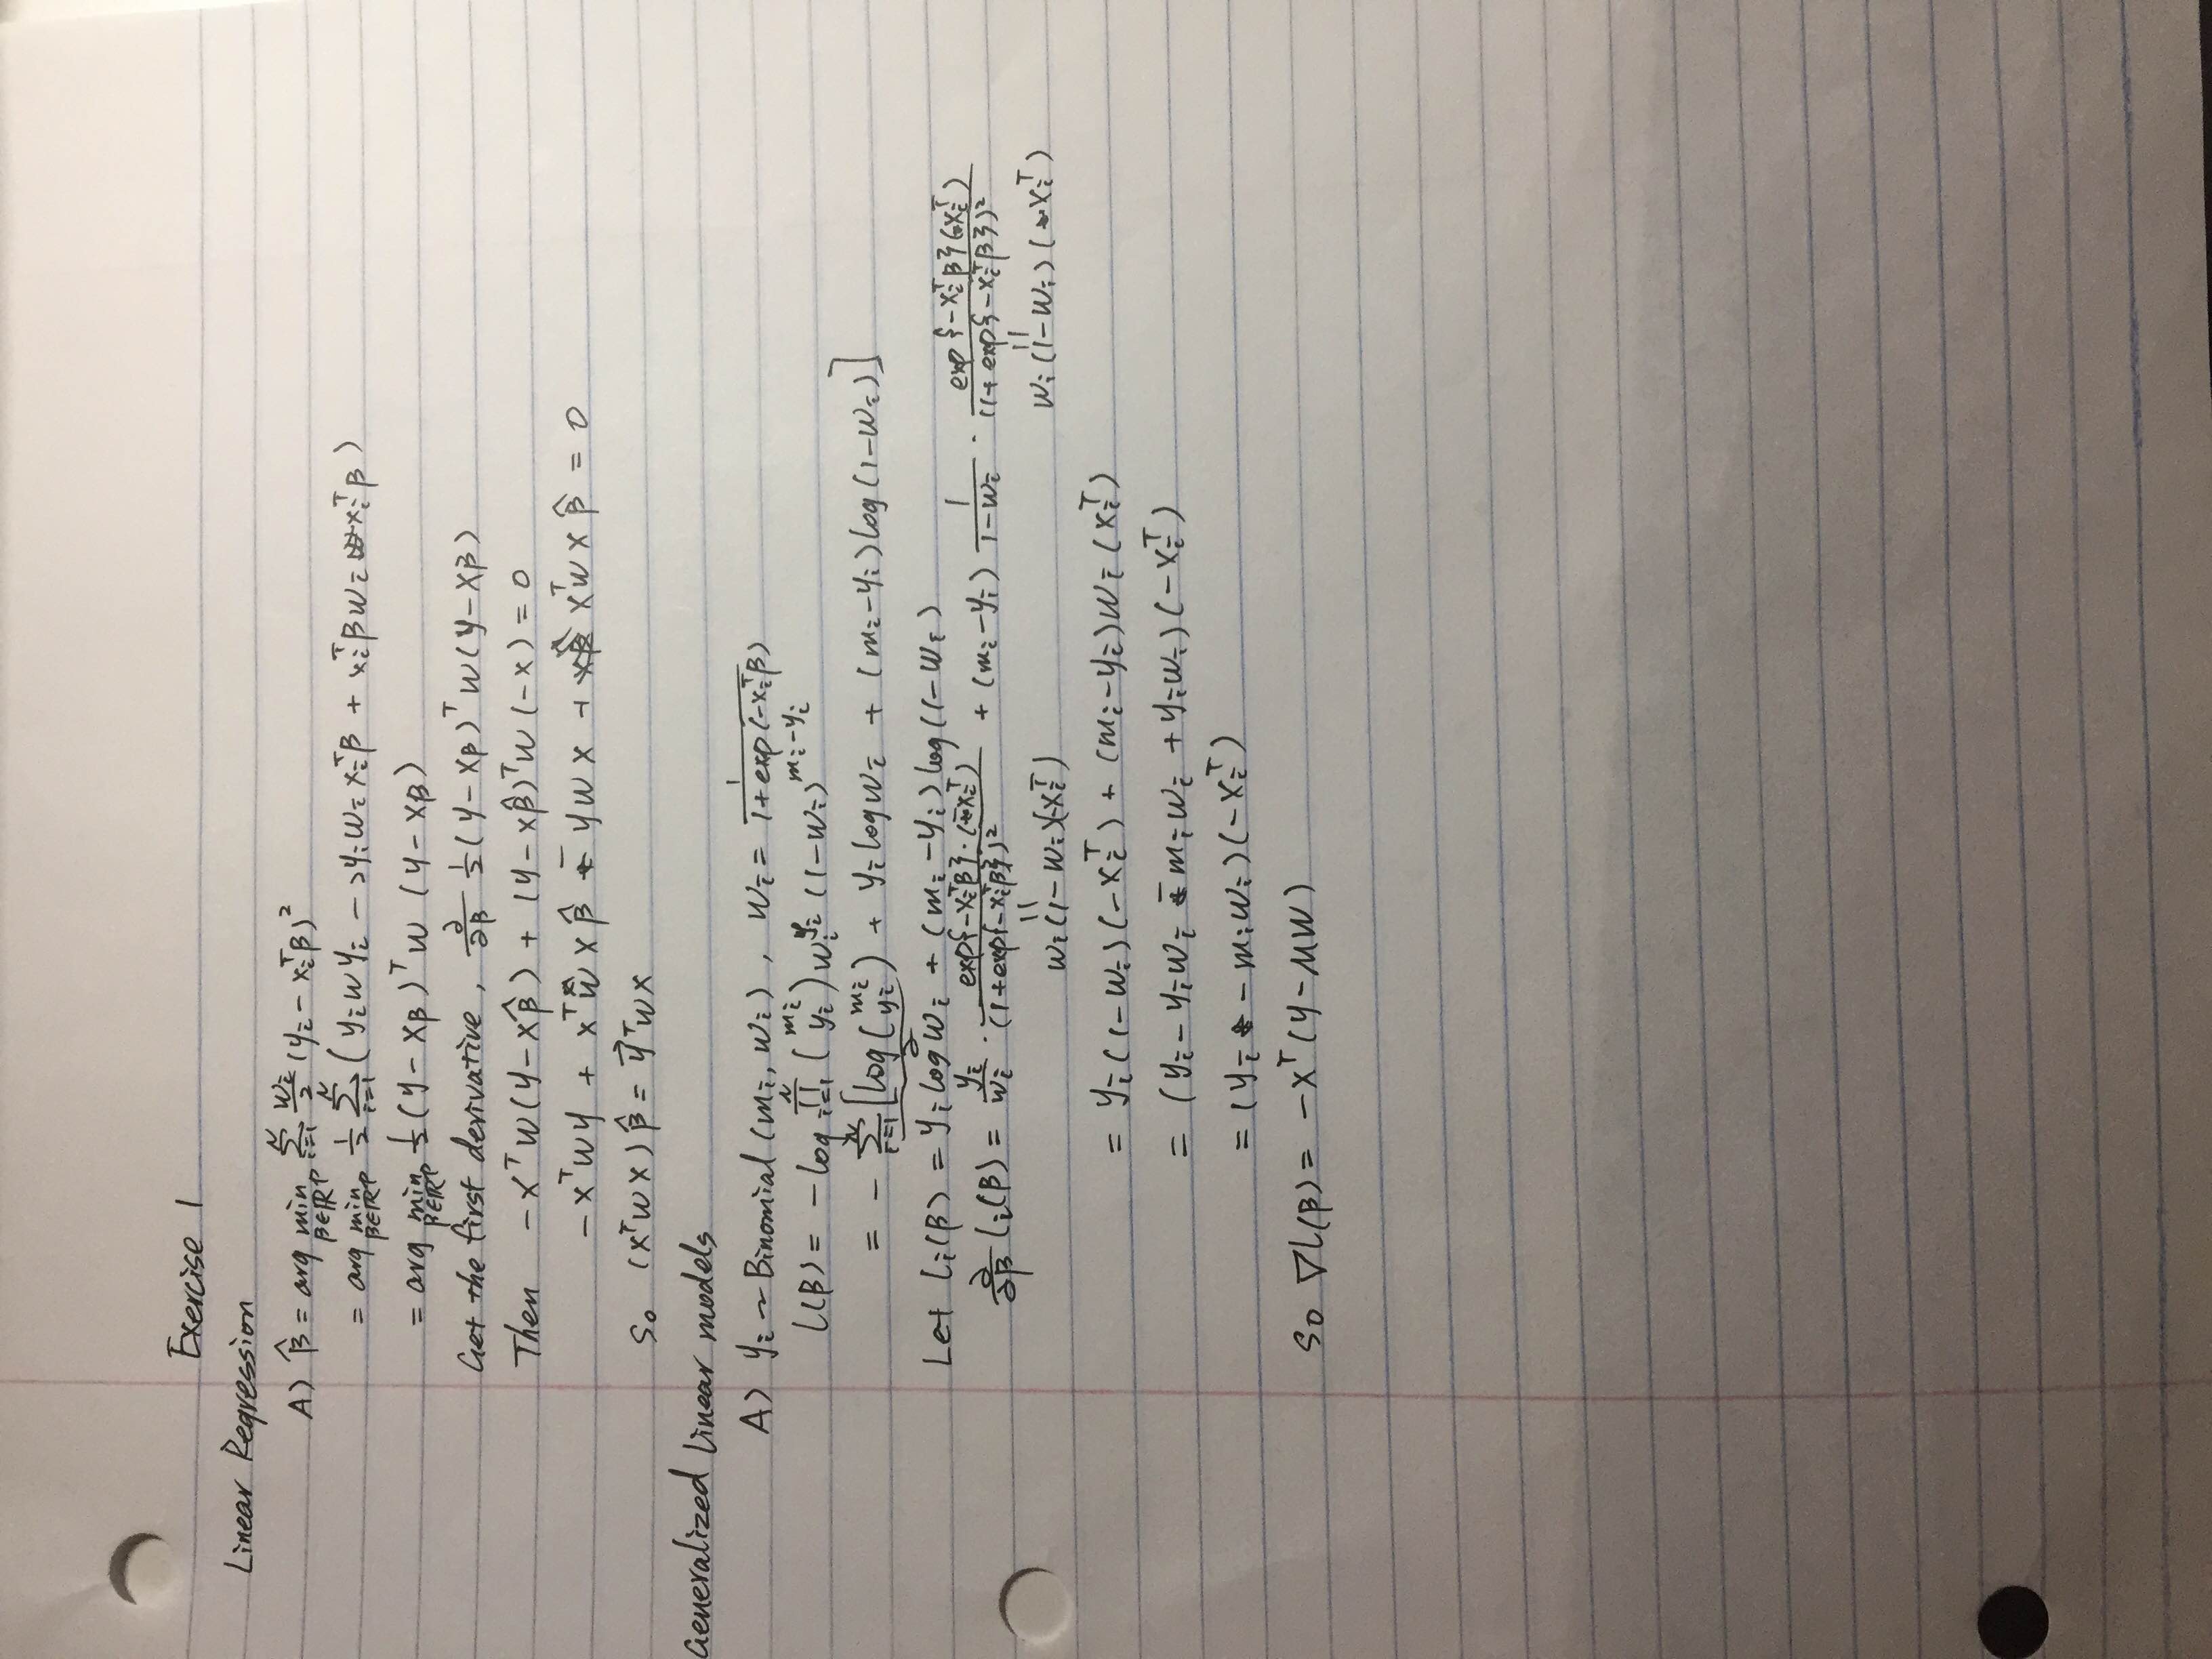 Exercise 1
Linear Regression
A) β̂ = arg min_{β∈ℝ^P} Σ_{i=1}^{N} w_i/2 (y_i − x_i^T β)^2
= arg min_{β∈ℝ^P} 1/2 Σ_{i=1}^{N} ( y_i w y_i − 2y_i w_i x_i^T β + x_i^T β w_i x_i^T β )
= arg min_{β∈ℝ^P} 1/2 (y − Xβ)^T W (y − Xβ)
Get the first derivative, ∂/∂β 1/2 (y − Xβ)^T W (y − Xβ)
Then − X^T W (y − Xβ̂) + (y − Xβ̂)^T W (−X) = 0
− X^T W y + X^T W X β̂ − y W X + X^T W X β̂ = 0
So (X^T W X) β̂ = y⃗^T W X
Generalized linear models
A) y_i ~ Binomial (m_i, w_i), w_i = 1/(1+exp(−x_i^T β))
l(β) = − log ∏_{i=1}^{N} (m_i y_i) w_i^{y_i} (1−w_i)^{m_i−y_i}
= − Σ_{i=1}^{N} [log (m_i y_i) + y_i log w_i + (m_i−y_i) log (1−w_i)]
Let l_i(β) = y_i log w_i + (m_i − y_i) log (1−w_i)
∂/∂β l_i(β) = y_i/w_i · exp{−x_i^T β}·(−x_i^T)/(1+exp{−x_i^T β})^2 + (m_i − y_i) 1/(1−w_i) · exp{−x_i^T β}(x_i^T)/(1+exp{−x_i^T β})^2
|| ||
w_i(1−w_i)(−x_i^T) w_i(1−w_i)(x_i^T)
= y_i(1−w_i)(−x_i^T) + (m_i−y_i)w_i(x_i^T)
= (y_i − y_i w_i − m_i w_i + y_i w_i)(−x_i^T)
= (y_i − m_i w_i)(−x_i^T)
So ∇l(β) = −X^T (y − MW)